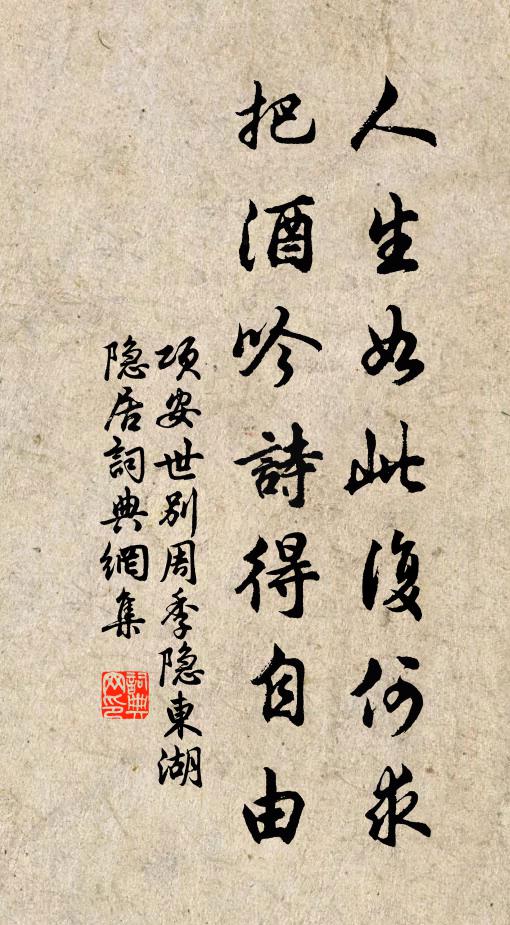 人生如此復何求
把酒吟詩得自由
项安世别周季隐東湖
隐居詞典網集
詞典
网印